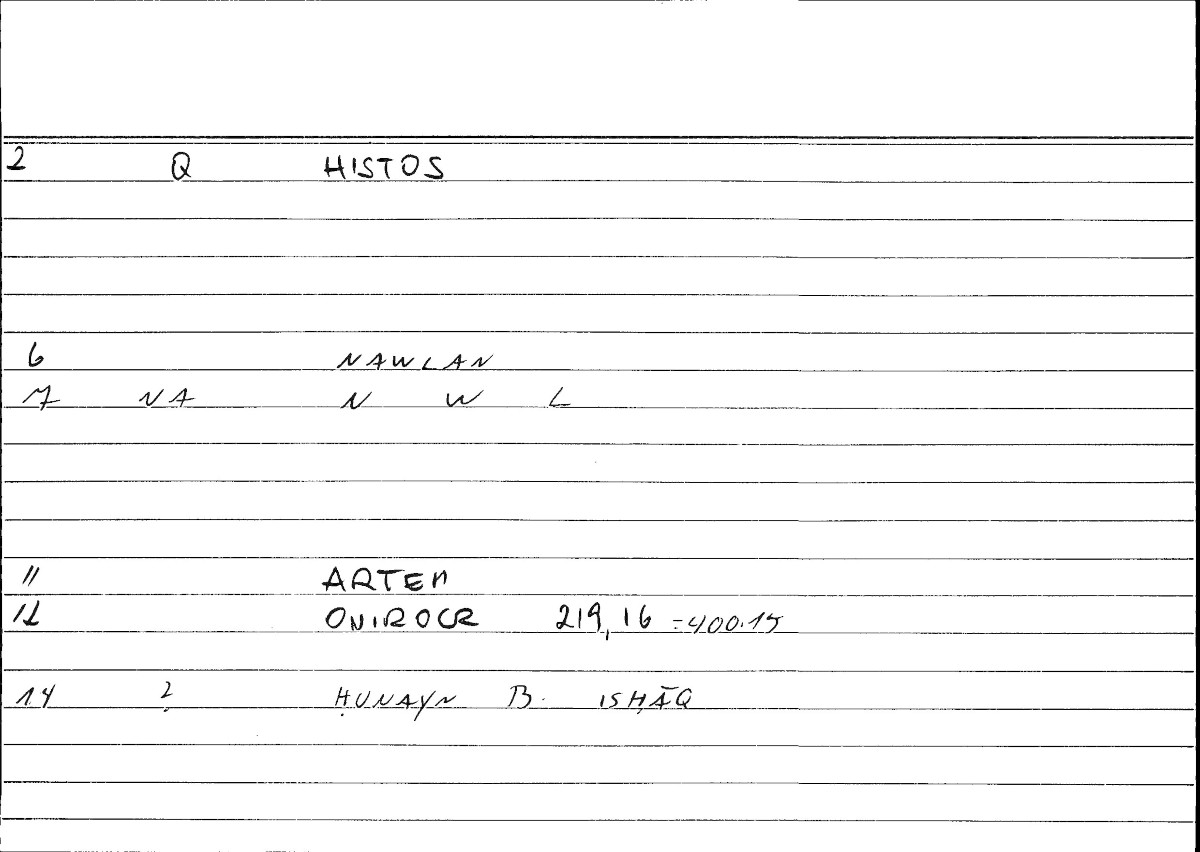 2 Q HISTOS
6 NAWLAN
7 NA N W L
11 ARTEM
12 ONIROCR 219,16 =400.15
14 ? ḤUNAYN B. ISḤĀQ